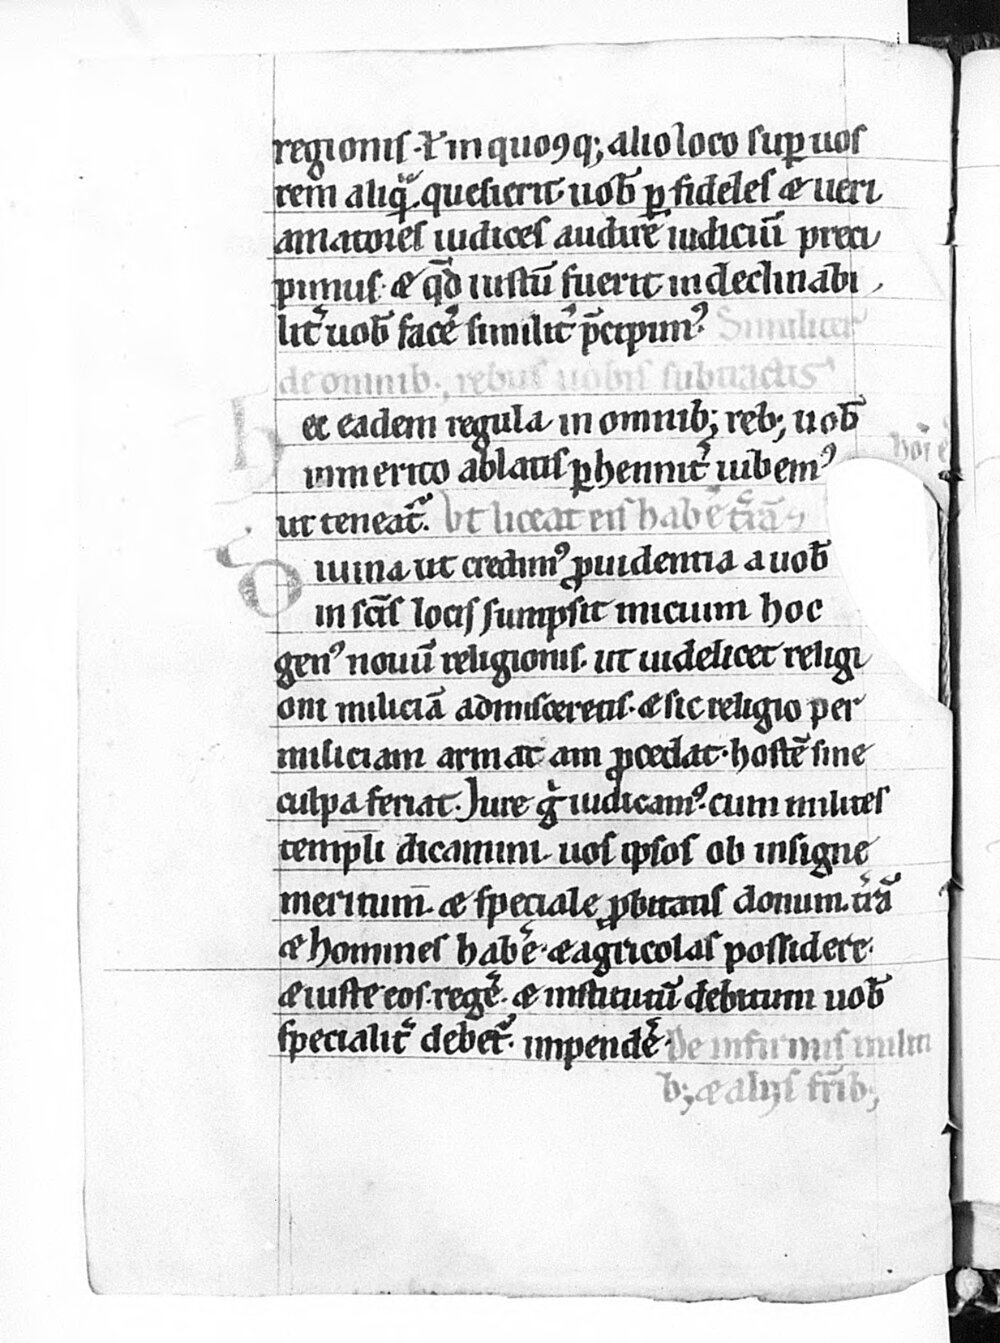 regionis · ł in quoꝯq; alio loco suꝑ uos
rem aliq̃ quesierit uob̄ ꝑ fideles & ueri
amatores iudices audirē iudiciū preci
pimus · & qđ iustū fuerit indeclinabi
lit̉ uob̄ facẽ similit̉ p̄cipim᾽ · Similiter
de omnib; rebus uobis subtractis
H
ec eadem regula in omnib; reb; uob̄
inmerito ablatis ꝑhennit̉ iubem᾽
ut teneat̉. Vt liceat eis habẽ t̉rā &
hoı̄ē
D
iuina ut credim᾽ ꝓuidentia a uob̄
in scīs locis sumpsit inicium hoc
gen᾽ nouū religionis · ut uidelicet religi
oni miliciā admisceretis · & sic religio per
miliciam armata ꝓcedat · hostē sine
culpa feriat · Jure g̉ iudicam᾽ · cum milites
templi dicamini · uos ipsos ob insigne
meritum · & speciale ꝓbitatis donum · t̉rā
& homines habẽ · & agricolas possidere ·
& iuste eos regẽ · & institutū debitum uob̄
specialit̉ debet̉ · impendẽ · De infirmis milit
b; & alijs fr̄ib;